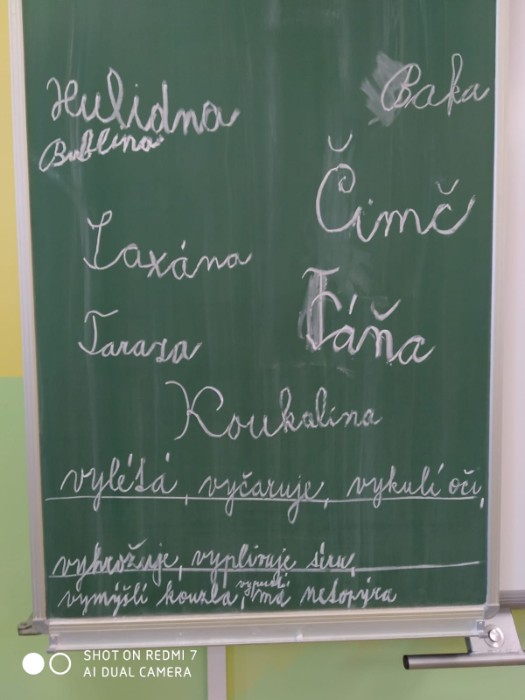 Hulidna Baka
Bublina
Čimč
Saxána
Fáňa
Taraza
Koukalina
vylétá, vyčaruje, vykulí oči,
vyhrožuje, vyplivuje síru,
vypustí
vymýšlí kouzla, má netopýra
SHOT ON REDMI 7
AI DUAL CAMERA